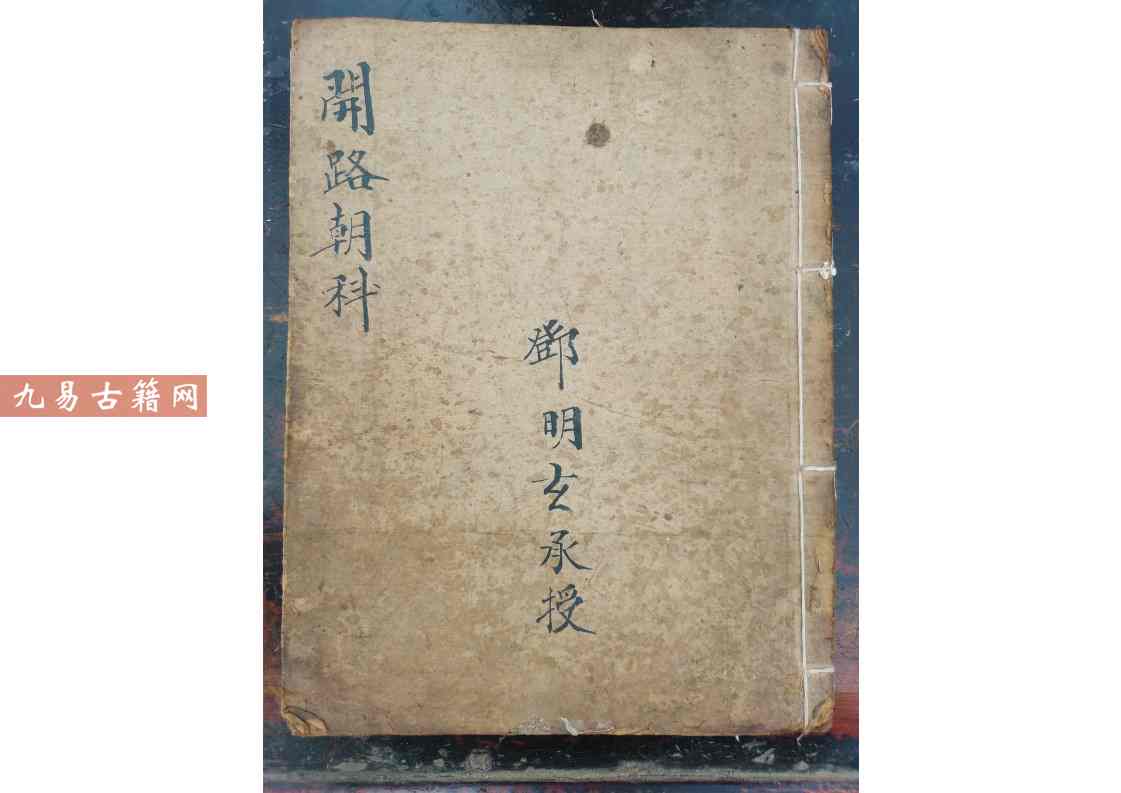 開路朝科
鄧明玄承授
九易古籍网